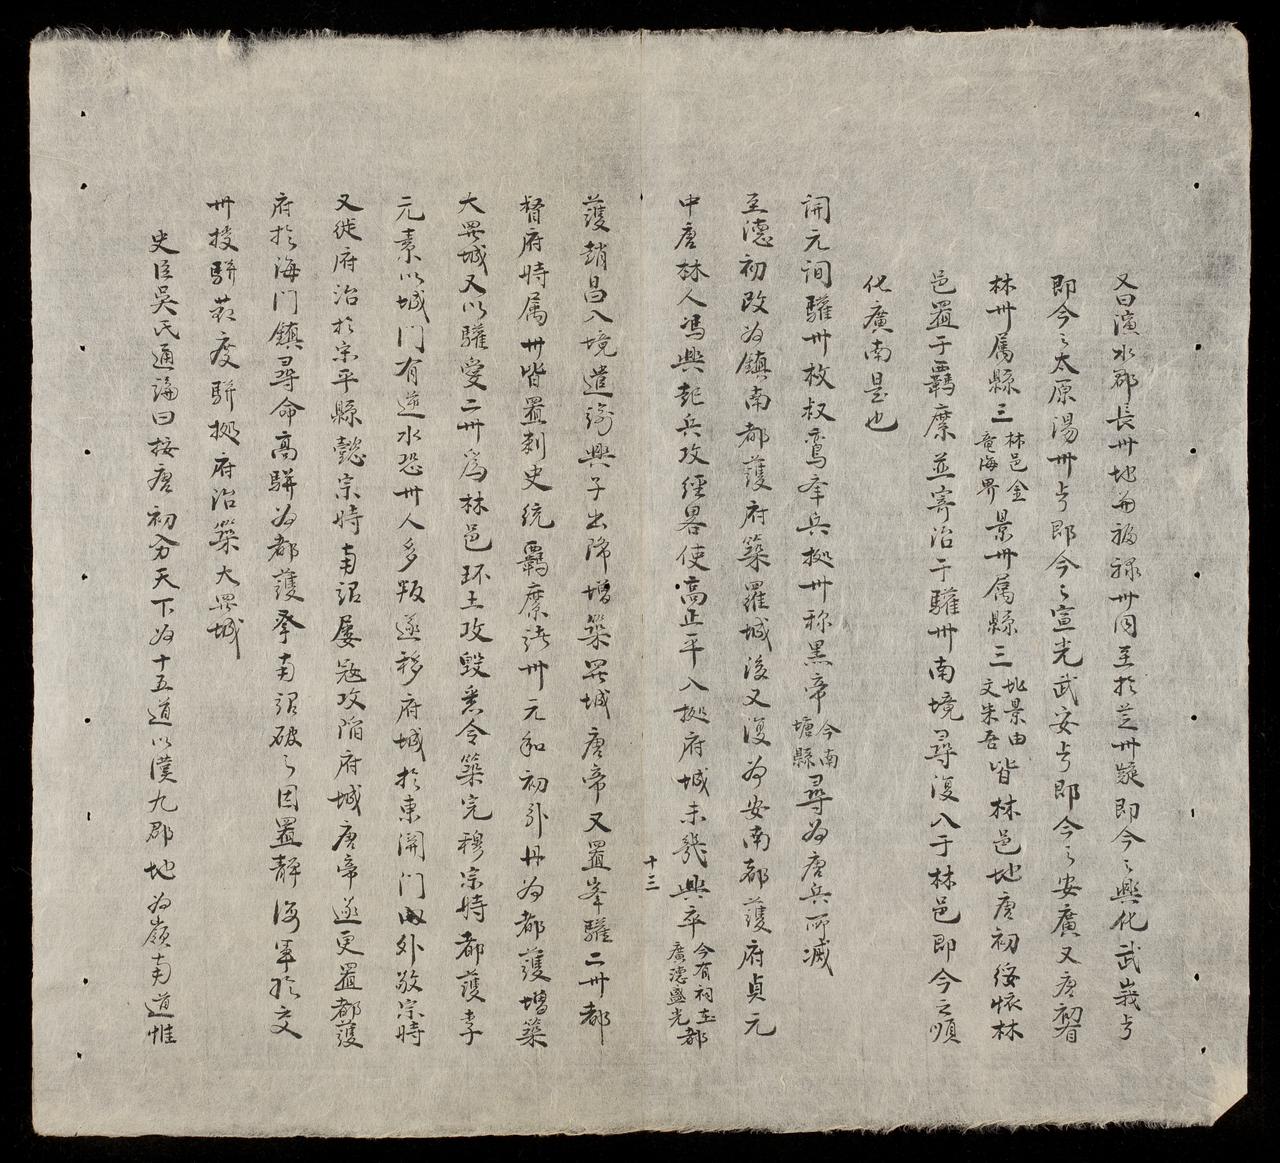 又曰濱水郡長卅地兩福祿卅同至於芝卅疑即今之興化武峩与
即今之太原湯卅与即今之宣光武安与即今之安廣又唐初省
林卅属縣三林邑金竜海界景卅属縣三北景由文朱吾皆林邑地唐初綏懷林
邑置于覊縻並寄治于驩卅南境尋復入于林邑即今之順
化廣南是也
開元間驩卅枚叔鸞率兵拠卅称黒帝今南塘縣尋为唐兵所滅
至徳初改为鎮南都護府築羅城後又復为安南都護府貞元
中唐林人馮興起兵攻經畧使高正平入拠府城未幾興卒今有祠在都廣徳盛光都
十三
護趙昌入境遣諭興子出降增築羅城唐帝又置峯驩二卅都
督府時属卅皆置刺史統覊縻諸卅元和初張丹为都護增築
大羅城又以驩愛二卅爲林邑环王攻毀悉令築完穆宗時都護李
元素以城门有逆水恐卅人多叛遂移府城於東開门由外敬宗時
又徙府治於宋平縣懿宗時南詔屡寇攻陷府城唐帝遂更置都護
府於海门鎮尋命高駢为都護擊南詔破之因置靜海軍於交
卅授駢莭度駢拠府治築大羅城
史臣吳氏通論曰按唐初分天下为十五道以漢九郡地为嶺南道惟